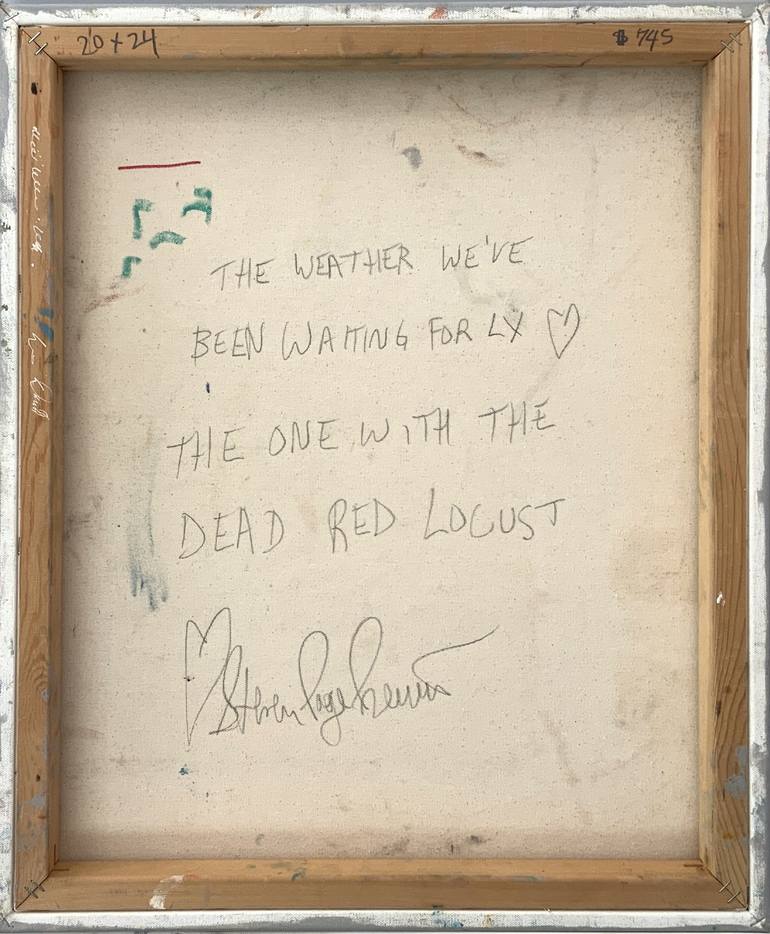 20 x 24
$ 745
THE WEATHER WE'VE
BEEN WAITING FOR LX ♡
THE ONE WITH THE
DEAD RED LOCUST
♡ Steven Page Prewitt